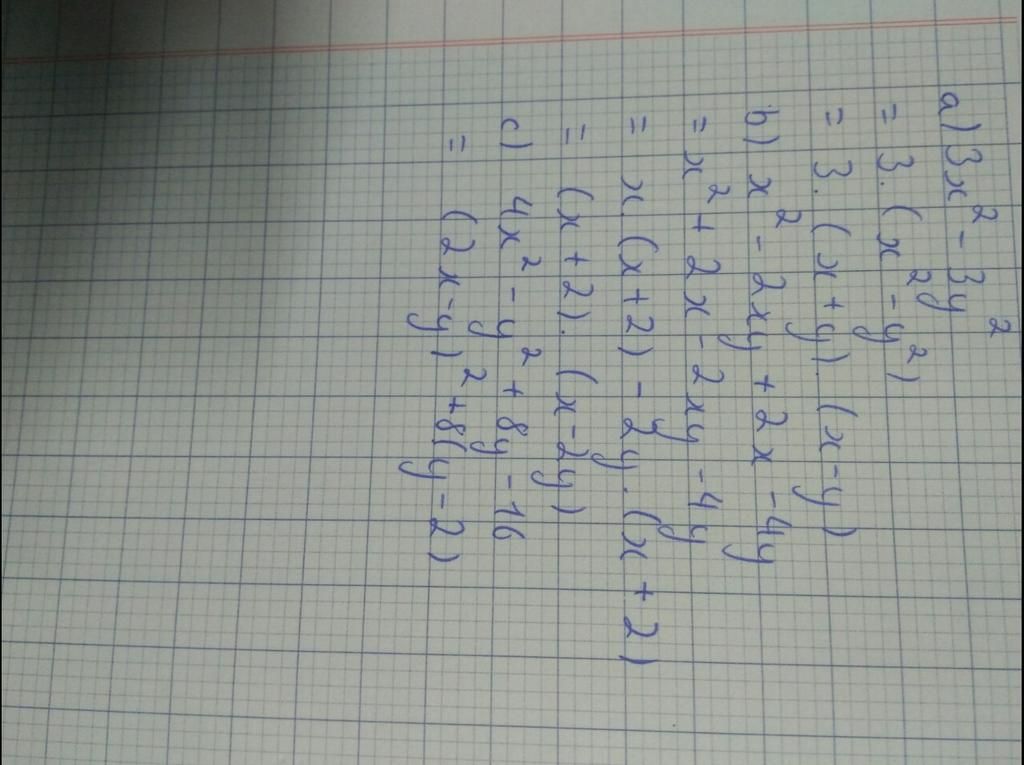 a) 3x² - 3y²
= 3.(x² - y²)
= 3.(x + y).(x - y)
b) x² - 2xy + 2x - 4y
= x² + 2x - 2xy - 4y
= x.(x + 2) - 2y.(x + 2)
= (x + 2).(x - 2y)
c) 4x² - y² + 8y - 16
= (2x - y)² + 8(y - 2)